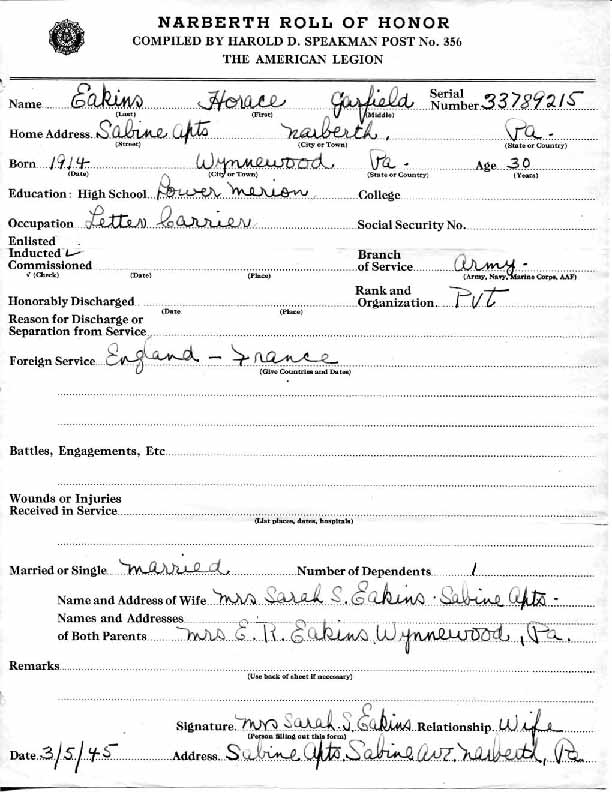 NARBERTH ROLL OF HONOR
COMPILED BY HAROLD D. SPEAKMAN POST No. 356
THE AMERICAN LEGION
Name Eakins Horace Garfield Serial Number 33789215
(Last) (First) (Middle)
Home Address Sabine Apts Narberth, Pa.
(Street) (City or Town) (State or Country)
Born 1914 Wynnewood Pa. Age 30
(Date) (City or Town) (State or Country) (Years)
Education: High School Lower Merion College
Occupation Letter Carrier Social Security No.
Enlisted
Inducted ✓ Branch
Commissioned of Service Army.
√ (Check) (Date) (Place) (Army, Navy, Marine Corps, AAF)
Rank and
Honorably Discharged Organization Pvt
(Date (Place)
Reason for Discharge or
Separation from Service
Foreign Service England - France
(Give Countries and Dates)
Battles, Engagements, Etc
Wounds or Injuries
Received in Service
(List places, dates, hospitals)
Married or Single Married Number of Dependents 1
Name and Address of Wife Mrs Sarah S. Eakins - Sabine Apts -
Names and Addresses
of Both Parents Mrs E. R. Eakins Wynnewood, Pa.
Remarks
(Use back of sheet if necessary)
Signature Mrs Sarah S. Eakins Relationship Wife
(Person filling out this form)
Date 3/5/45 Address Sabine Apts. Sabine Ave. Narberth, Pa